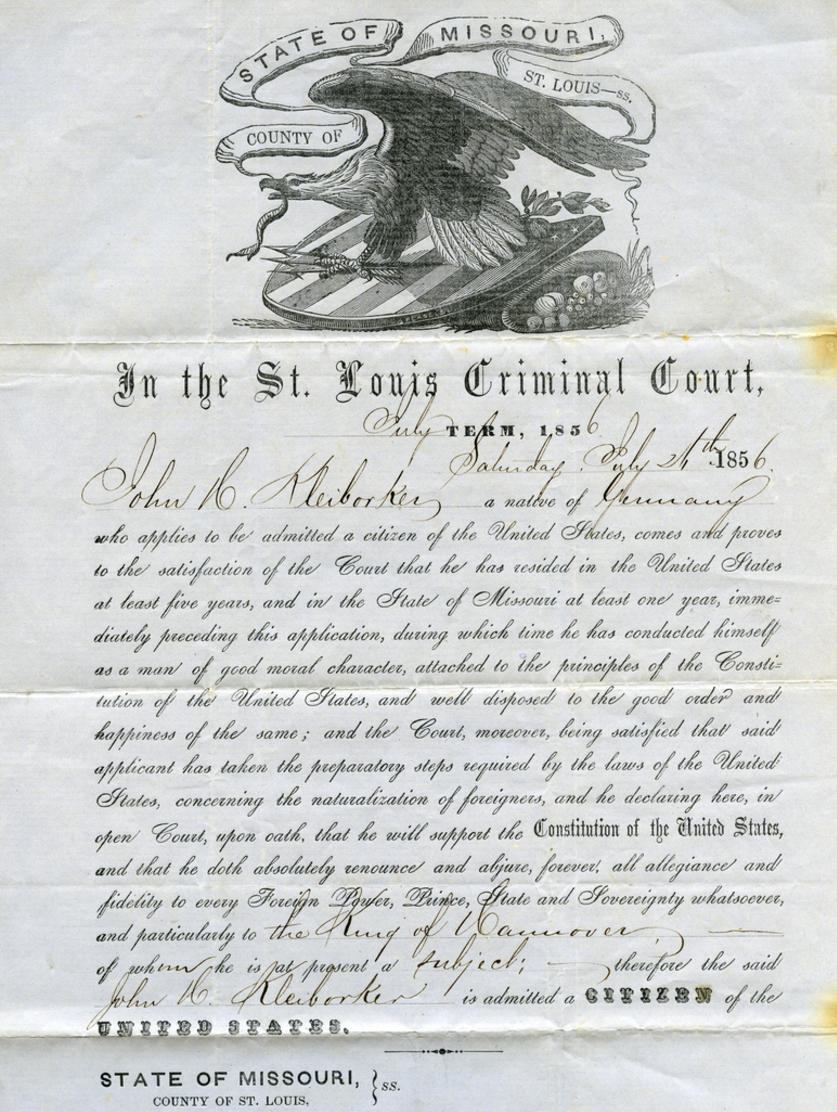 STATE OF MISSOURI,
COUNTY OF ST. LOUIS—ss.
In the St. Louis Criminal Court,
July TERM, 1856
Saturday. July 26th 1856.
John H. Kleiborker a native of Germany
who applies to be admitted a citizen of the United States, comes and proves
to the satisfaction of the Court that he has resided in the United States
at least five years, and in the State of Missouri at least one year, imme=
diately preceding this application, during which time he has conducted himself
as a man of good moral character, attached to the principles of the Consti=
tution of the United States, and well disposed to the good order and
happiness of the same; and the Court, moreover, being satisfied that said
applicant has taken the preparatory steps required by the laws of the United
States, concerning the naturalization of foreigners, and he declaring here, in
open Court, upon oath, that he will support the Constitution of the United States,
and that he doth absolutely renounce and abjure, forever, all allegiance and
fidelity to every Foreign Power, Prince, State and Sovereignty whatsoever,
and particularly to the King of Hannover,
of whom he is at present a subject; therefore the said
John H. Kleiborker is admitted a CITIZEN of the
UNITED STATES.
STATE OF MISSOURI, } ss.
COUNTY OF ST. LOUIS,